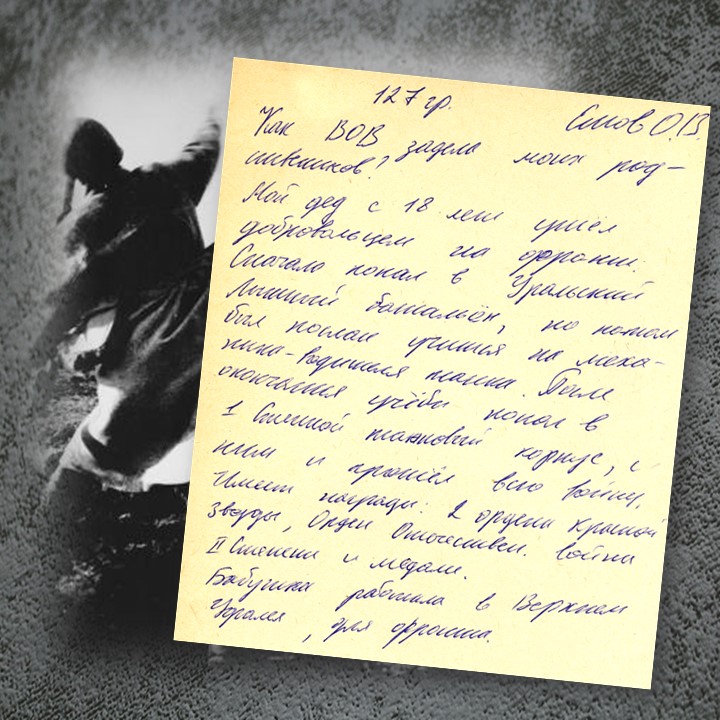 127 гр.
Ешов О.В.
Как ВОВ задела моих род-
ственников?
Мой дед с 18 лет ушёл
добровольцем на фронт.
Сначала попал в Уральский
Лыжный батальён, но потом
был послан учиться на меха-
ника-водителя танка. После
окончания учёбы попал в
1 Степной танковый корпус, с
ним и прошёл всю войну.
Имеет награды: 2 ордена Красной
Звезды, Орден Отечествен. войны
II Степени и медали.
Бабушка работала в Верхнем
Уфалее, для фронта.